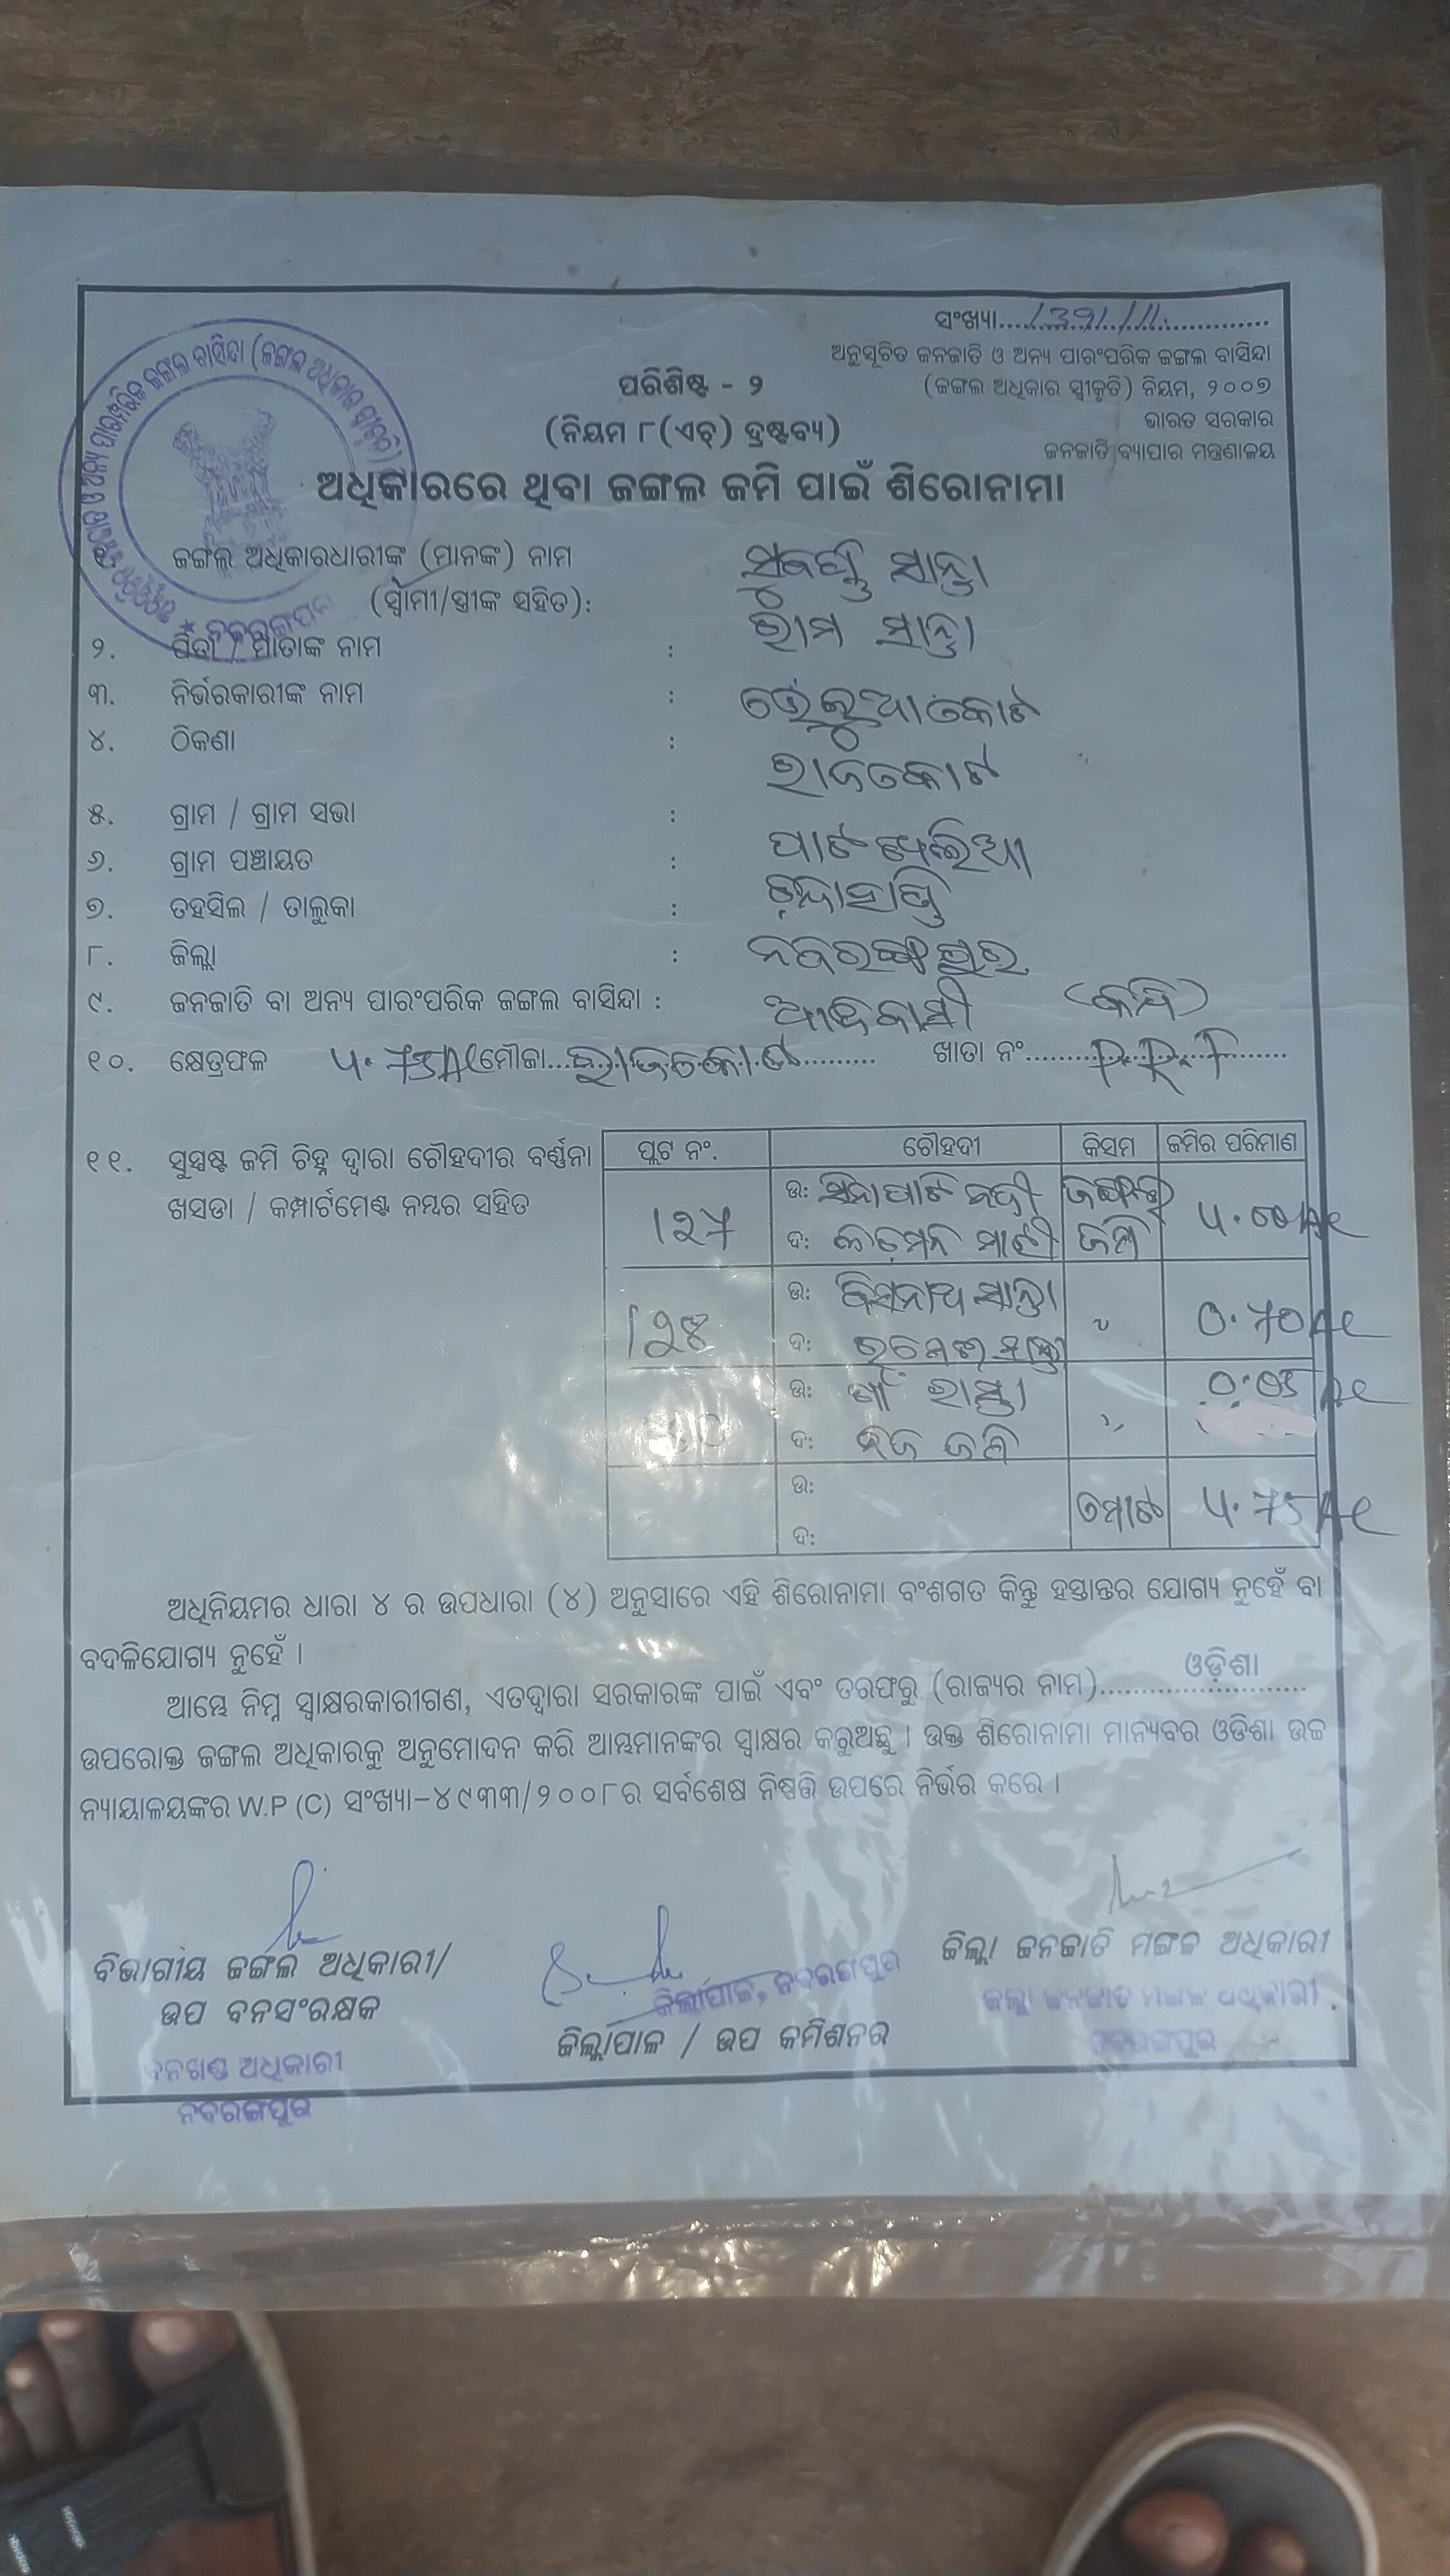 ସଂଖ୍ୟା.....1391/11.....
ଅନୁସୂଚିତ ଜନଜାତି ଓ ଅନ୍ୟ ପାରଂପରିକ ଜଙ୍ଗଲ ବାସିନ୍ଦା
(ଜଙ୍ଗଲ ଅଧିକାର ସ୍ୱୀକୃତି) ନିୟମ, ୨୦୦୭
ଭାରତ ସରକାର
ଜନଜାତି ବ୍ୟାପାର ମନ୍ତ୍ରଣାଳୟ
ପରିଶିଷ୍ଟ - ୨
(ନିୟମ ୮(ଏଚ୍) ଦ୍ରଷ୍ଟବ୍ୟ)
ଅଧିକାରରେ ଥିବା ଜଙ୍ଗଲ ଜମି ପାଇଁ ଶିରୋନାମା
ଜଙ୍ଗଲ ଅଧିକାରଧାରୀଙ୍କ (ମାନଙ୍କ) ନାମ ସାନ୍ତା
(ସ୍ୱାମୀ/ସ୍ତ୍ରୀଙ୍କ ସହିତ):
୨. ପିତା / ମାତାଙ୍କ ନାମ : ରାମ ସାନ୍ତା
୩. ନିର୍ଭରକାରୀଙ୍କ ନାମ :
୪. ଠିକଣା : ରାଜକୋଟ
୫. ଗ୍ରାମ / ଗ୍ରାମ ସଭା :
୬. ଗ୍ରାମ ପଞ୍ଚାୟତ :
୭. ତହସିଲ / ତାଲୁକା :
୮. ଜିଲ୍ଲା : ନବରଙ୍ଗପୁର
୯. ଜନଜାତି ବା ଅନ୍ୟ ପାରଂପରିକ ଜଙ୍ଗଲ ବାସିନ୍ଦା : ଆଦିବାସୀ
୧୦. କ୍ଷେତ୍ରଫଳ ୪.75Ac ମୌଜା...ରାଜକୋଟ......... ଖାତା ନଂ.....P.R.F.....
୧୧. ସୁସ୍ପଷ୍ଟ ଜମି ଚିହ୍ନ ଦ୍ୱାରା ଚୌହଦୀର ବର୍ଣ୍ଣନା
ଖସଡା / କମ୍ପାର୍ଟମେଣ୍ଟ ନମ୍ବର ସହିତ
ପ୍ଲଟ ନଂ. ଚୌହଦୀ କିସମ ଜମିର ପରିମାଣ
ଉ: ନଦୀ ଜଙ୍ଗଲ
ଦ: ଜମି
ଉ: ସାନ୍ତା 0.70Ac
ଦ:
ଉ: ଗାଁ ରାସ୍ତା 0.05Ac
ଦ: ନିଜ ଜମି
ଉ: ମୋଟ ୪.75Ac
ଦ:
ଅଧିନିୟମର ଧାରା ୪ ର ଉପଧାରା (୪) ଅନୁସାରେ ଏହି ଶିରୋନାମା ବଂଶଗତ କିନ୍ତୁ ହସ୍ତାନ୍ତର ଯୋଗ୍ୟ ନୁହେଁ ବା
ବଦଳିଯୋଗ୍ୟ ନୁହେଁ ।
ଆମ୍ଭେ ନିମ୍ନ ସ୍ୱାକ୍ଷରକାରୀଗଣ, ଏତଦ୍ୱାରା ସରକାରଙ୍କ ପାଇଁ ଏବଂ ତରଫରୁ (ରାଜ୍ୟର ନାମ).....ଓଡ଼ିଶା.....
ଉପରୋକ୍ତ ଜଙ୍ଗଲ ଅଧିକାରକୁ ଅନୁମୋଦନ କରି ଆମ୍ଭମାନଙ୍କର ସ୍ୱାକ୍ଷର କରୁଅଛୁ । ଉକ୍ତ ଶିରୋନାମା ମାନ୍ୟବର ଓଡିଶା ଉଚ୍ଚ
ନ୍ୟାୟାଳୟଙ୍କର W.P (C) ସଂଖ୍ୟା-୪୯୩୩/୨୦୦୮ର ସର୍ବଶେଷ ନିଷ୍ପତ୍ତି ଉପରେ ନିର୍ଭର କରେ ।
ବିଭାଗୀୟ ଜଙ୍ଗଲ ଅଧିକାରୀ/
ଉପ ବନସଂରକ୍ଷକ
ବନଖଣ୍ଡ ଅଧିକାରୀ
ନବରଙ୍ଗପୁର
ଜିଲ୍ଲାପାଳ, ନବରଙ୍ଗପୁର
ଜିଲ୍ଲାପାଳ / ଉପ କମିଶନର
ଜିଲ୍ଲା ଜନଜାତି ମଙ୍ଗଳ ଅଧିକାରୀ
ଜିଲ୍ଲା ଜନଜାତି ମଙ୍ଗଳ ଅଧିକାରୀ
ନବରଙ୍ଗପୁର